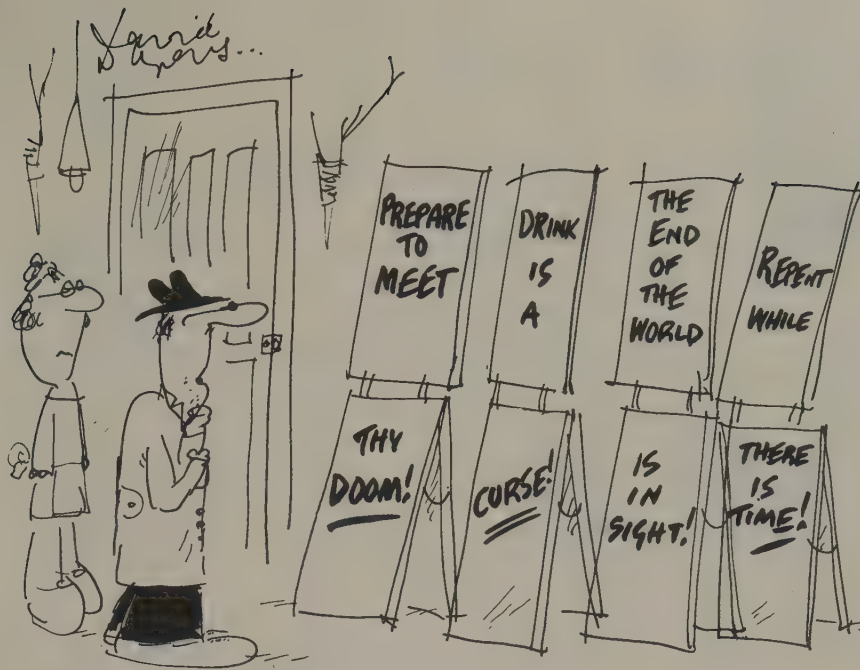 David
Myers...
PREPARE
TO
MEET
THY
DOOM!
DRINK
IS
A
CURSE!
THE
END
OF
THE
WORLD
IS
IN
SIGHT!
REPENT
WHILE
THERE
IS
TIME!